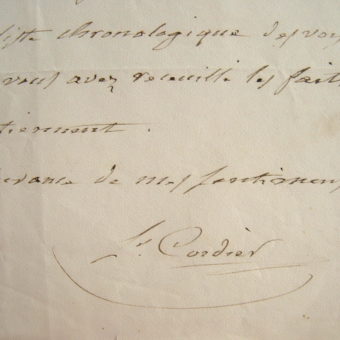 liste chronologique des voy
vous avez recueilli les fait
tiennent.
urance de mes sentimens
L. Cordier